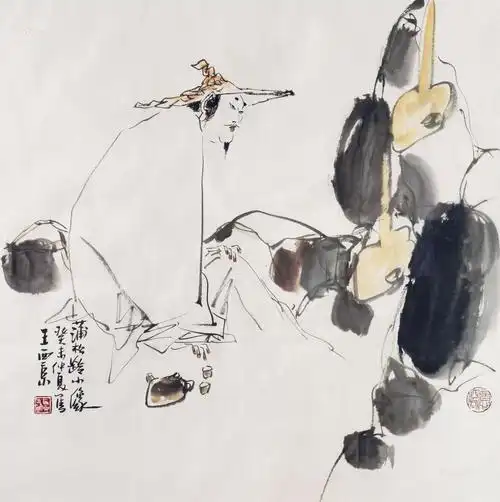 蒲松龄小像
癸未仲夏写
王西京